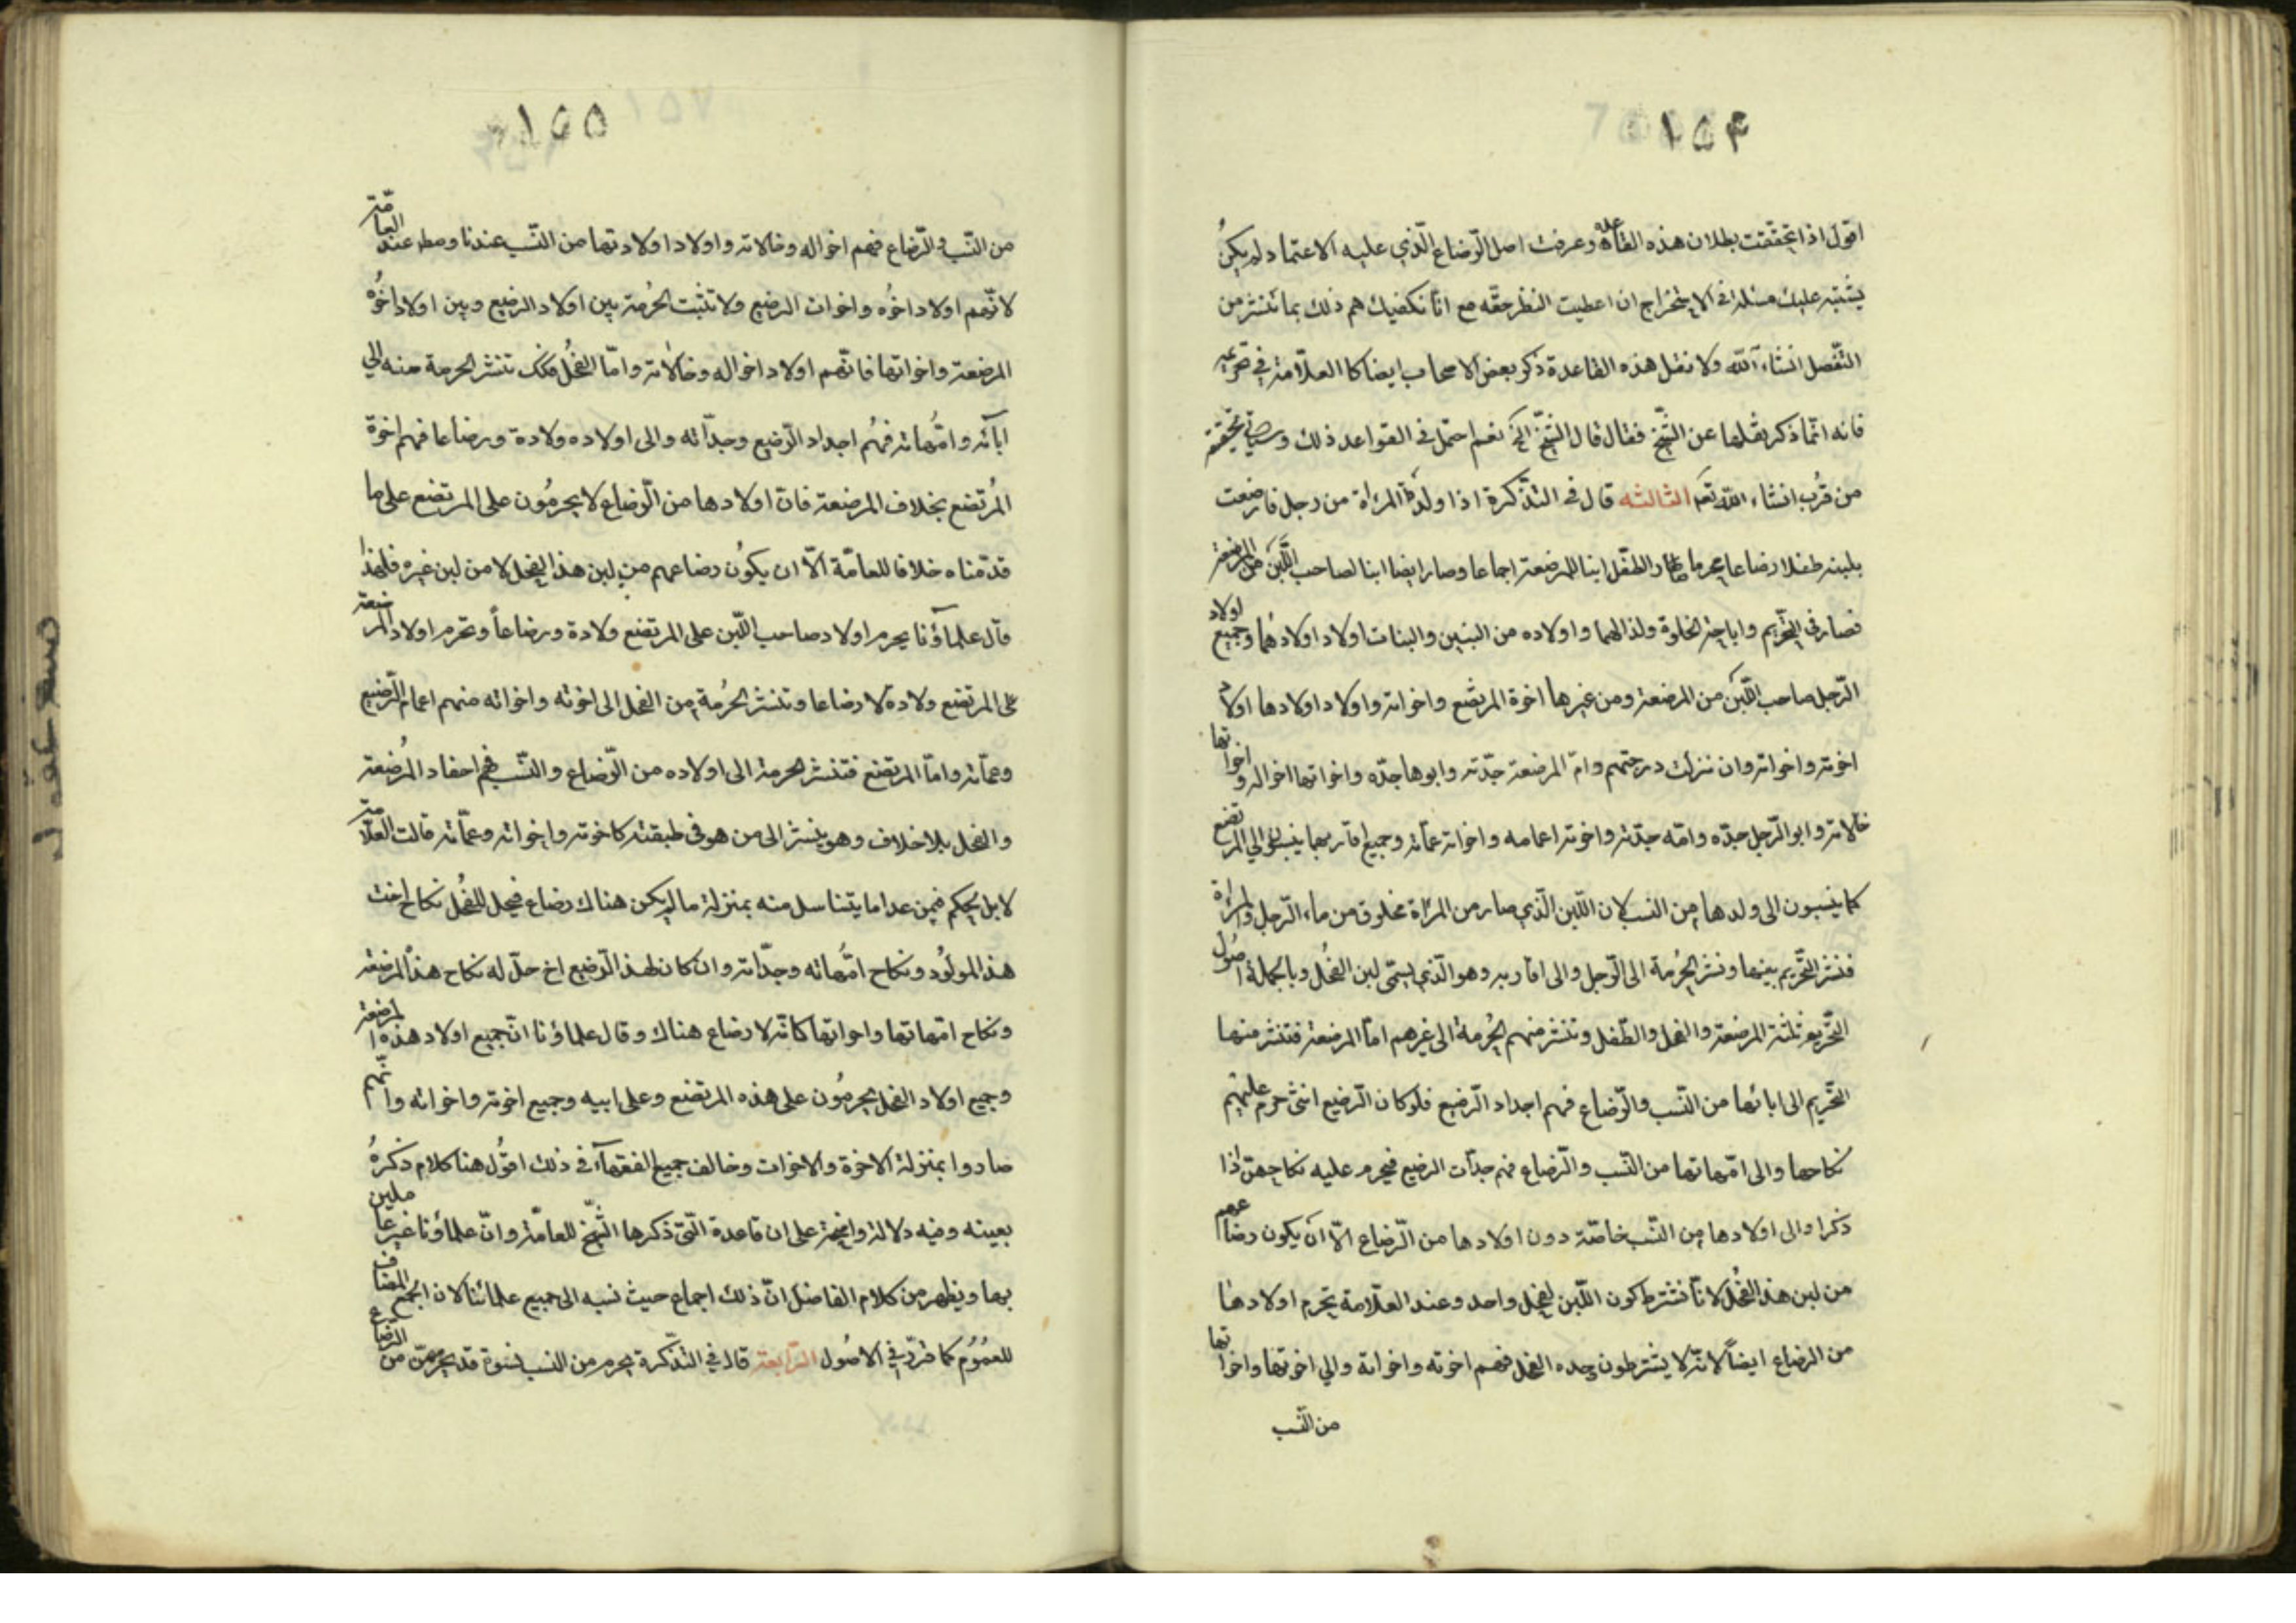 ١٥۴
اقول اذا تحققت بطلان هذه القاعدة وعرفت اصل الرضاع الذي عليه الاعتماد لم يكن
يشتبه عليك مسئلة في الاستخراج ان اعطيت النظر حقه مع انا نكفيك هم ذلك بما ننشر من
التفصل انشاء الله ولا نقل هذه القاعدة ذكر بعض الاصحاب ايضا كالعلامة في تحريره
فانه انما ذكر نقلها عن الشيخ فقال قال الشيخ الخ نعم احتمل في القواعد ذلك وسياتي تحقيقه
من قرب انشاء الله تعالى الثالثه قال في التذكرة اذا ولدت المراة من رجل فارضعت
بلبنه طفلا رضاعا محرما صار الطفل ابنا للمرضعة اجماعا وصار ايضا ابنا لصاحب اللبن من المرضعة
فصار في التحريم واباحة الخلوة ولدا لهما واولاده من البنين والبنات اولاد اولادهما وجميع اولاد
الرجل صاحب اللبن من المرضعة ومن غيرها اخوة المرتضع واخواته واولاد اولادها اولاد
اخوته واخواته وان نزلت درجتهم وام المرضعة جدته وابوها جده واخواتها اخواله واخواتها
خالاته وابو الرجل جده وامه جدته واخوته اعمامه واخواته عماته وجميع اقاربهما ينسبون الى المرتضع
كما ينسبون الى ولدها من النسب لان اللبن الذي صار من المراة مخلوق من ماء الرجل والمراة
فنشر التحريم بينها ونشر الحرمة الى الرجل والى اقاربه وهو الذي يسمى لبن الفحل وبالجملة اصول
التحريم ثلثة المرضعة والفحل والطفل وتنتشر منهم الحرمة الى غيرهم اما المرضعة فتنشر منها
التحريم الى ابائها من النسب والرضاع فهم اجداد الرضيع فلو كان الرضيع انثى حرم عليهم
نكاحها والى امهاتها من النسب والرضاع فهم جدات الرضيع فيحرم عليه نكاحهن اذا
ذكرا والى اولادها من النسب خاصة دون اولادها من الرضاع الا ان يكون رضاعهم
من لبن هذا الفحل لانا نشترط كون اللبن لفحل واحد وعند العلامة تحرم اولادها
من الرضاع ايضا لانه لا يشترطون وحده الفحل فهم اخوته واخواته والي اخوتها واخواتها
من النسب
١٥٥
من النسب والرضاع فهم اخواله وخالاته واولاد اولادتها من النسب عندنا ومطلقا عند العامة
لانهم اولاد اخوه واخوات الرضيع ولا تثبت الحرمة بين اولاد الرضيع وبين اولاد اخوه
المرضعة واخواتها فانهم اولاد اخواله وخالاته واما الفحل فكك تنشر الحرمة منه الي
ابائه وامهاته فهم اجداد الرضيع وجداته والى اولاده ولادة ورضاعا فهم اخوة
المرتضع بخلاف المرضعة فان اولادها من الرضاع لا يحرمون على المرتضع على ما
قدمناه خلافا للعامة الا ان يكون رضاعهم من لبن هذا الفحل لا من لبن غيره فلهذا
قال علماؤنا يحرم اولاد صاحب اللبن على المرتضع ولادة ورضاعاً وتحرم اولاد المرضعة
على المرتضع ولادة لا رضاعا وتنشر الحرمة من الفحل الى اخوته واخواته منهم اعمام الرضيع
وعماته واما المرتضع فتنشر الحرمة الى اولاده من الرضاع والنسب فهم احفاد المرضعة
والفحل بلا خلاف وهو ينشر الى من هو في طبقته كاخوته واخواته وعماته قالت العلامة
لا بل يحكم فيمن عدا ما يتناسل منه بمنزلة ما لم يكن هناك رضاع فيحل للفحل نكاح اخت
هذا المولود ونكاح امهاته وجداته وان كان لهذا الرضيع اخ حل له نكاح هذه المرضعة
ونكاح امهاتها واخواتها كانه لا رضاع هناك وقال علماؤنا ان جميع اولاد هذه المرضعة
وجميع اولاد الفحل يحرمون على هذه المرتضع وعلى ابيه وجميع اخوته واخواته وانهم
صاروا بمنزلة الاخوة والاخوات وخالف جميع الفقهاء في ذلك اقول هنا كلام ذكره
بعينه وفيه دلالة واضحة على ان قاعدة التي ذكرها الشيخ للعامة وان علماؤنا غير عاملين
بها ويظهر من كلام الفاضل ان ذلك اجماع حيث نسبه الى جميع علمائنا لان الجمع المضاف
للعموم كما قرر في الاصول الرابعة قال في التذكرة يحرم من النسب نسوة قد يحرمن من الرضاع